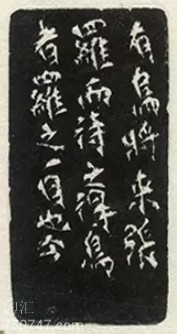 有鳥將来張
羅而待之得鳥
者羅之一目也今